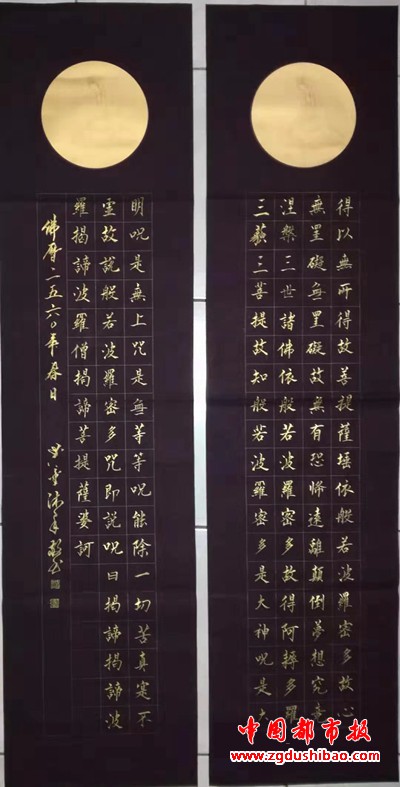 得以無所得故菩提薩埵依般若波羅密多故心
無罣礙無罣礙故無有恐怖遠離顛倒夢想究竟
涅槃三世諸佛依般若波羅密多故得阿耨多羅
三藐三菩提故知般若波羅密多是大神咒是大
明咒是無上咒是無等等咒能除一切苦真實不
虛故說般若波羅密多咒即說咒曰揭諦揭諦波
羅揭諦波羅僧揭諦菩提薩婆訶
佛曆二五六〇年春日
中国都市报
www.zgdushibao.com